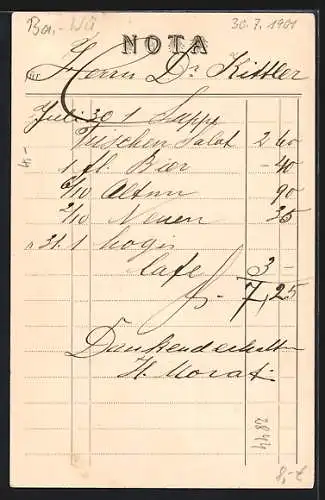 Ba.-Wü 30.7.1901
NOTA
für Herrn Dr. Kittler
Juli 30 1 Supp
Fischen Salat 2 60
1 fl. Bier - 40
6/10 Alten 90
2/10 Neuen 35
" 31. 1 Logis
Cafe 3 -
7,25
Dankend erhalten
H. Morat
4.-
2844
8,- €